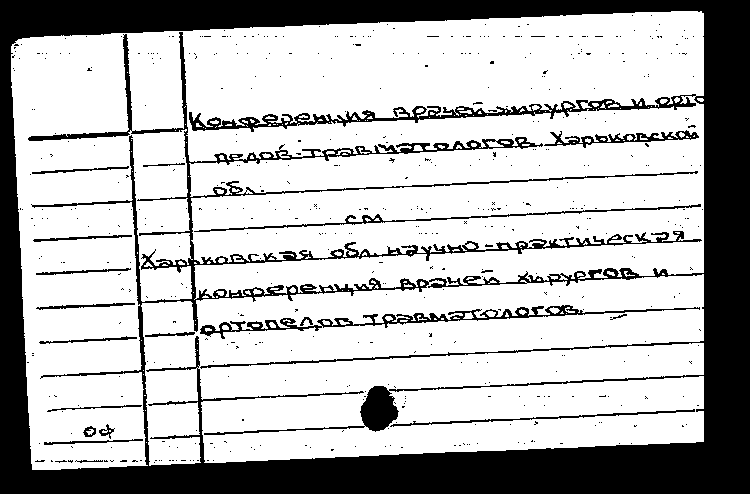 Конференция врачей-хирургов и орто
педов-травматологов Харьковской
обл.
см
Харьковская обл. научно-практическая
конференция врачей хирургов и
ортопедов травматологов.
оф